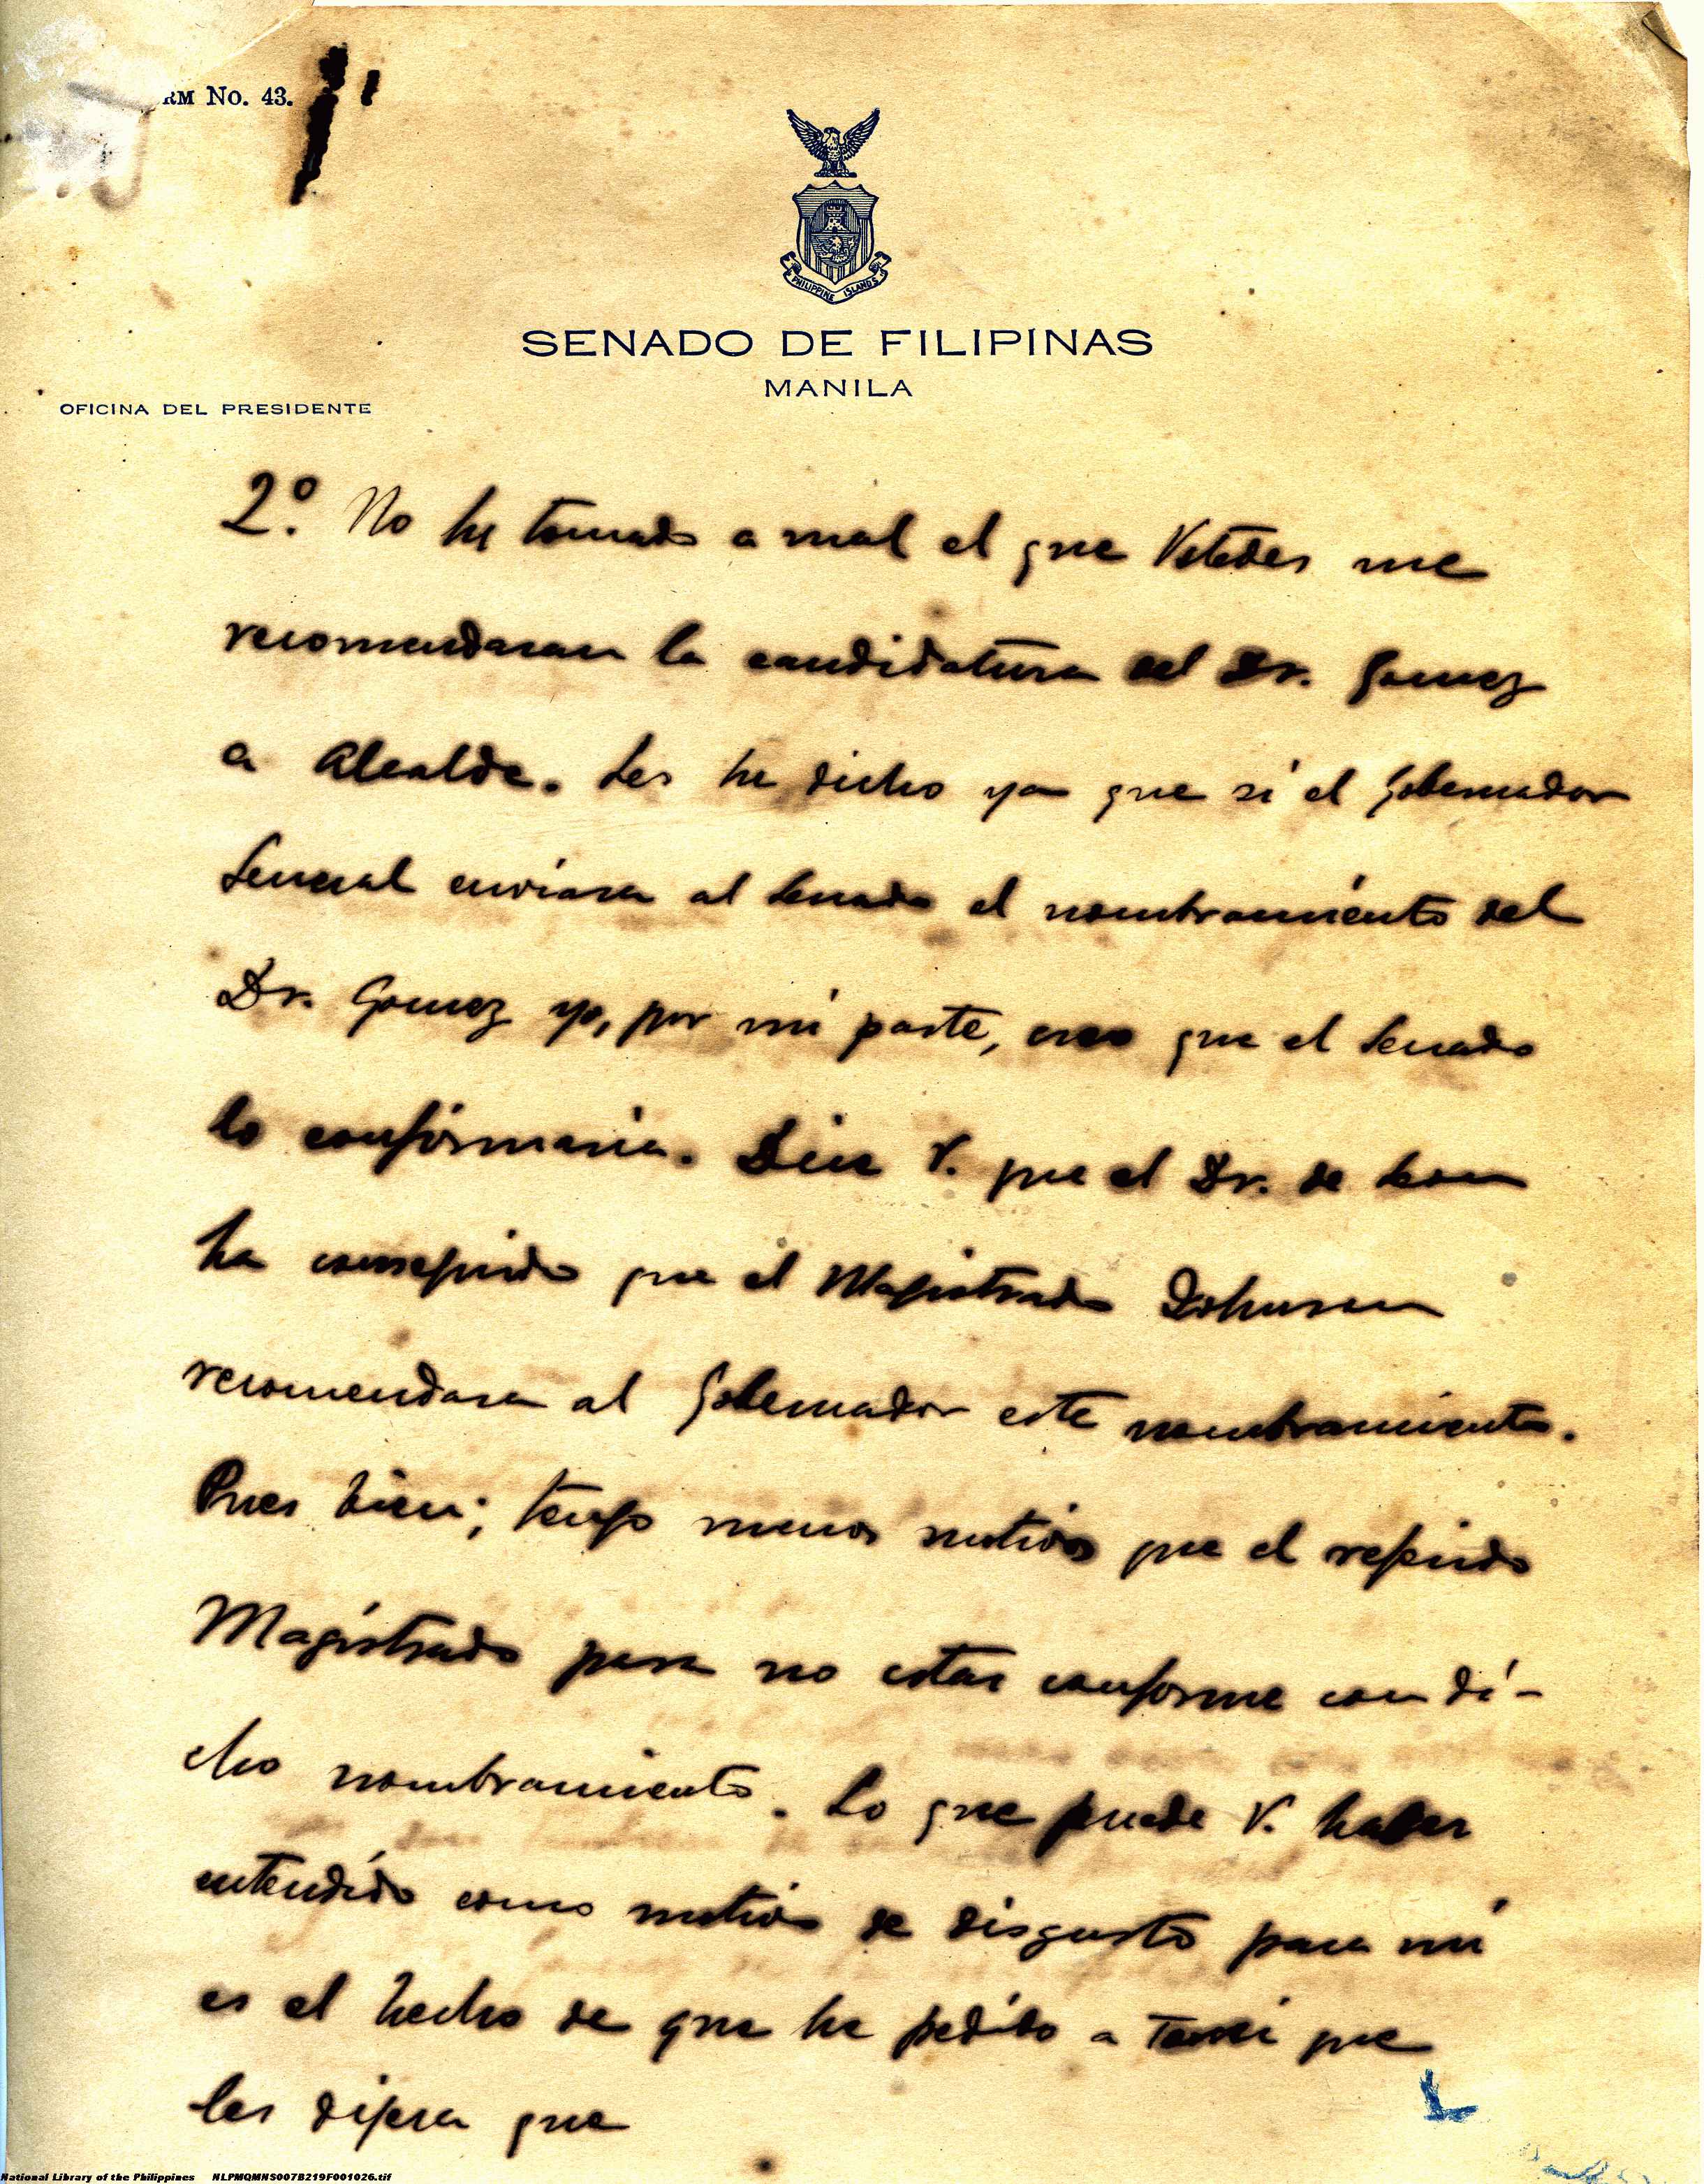 RM No. 43.
PHILIPPINE ISLANDS
SENADO DE FILIPINAS
MANILA
OFICINA DEL PRESIDENTE
2º. No he tomado a mal el que Vstedes me
recomendaran la candidatura del Dr. Gomez
a Alcalde. Les he dicho ya que si el Gobernador
General enviara al Senado el nombramiento del
Dr. Gomez yo, por mi parte, creo que el Senado
lo confirmaria. Dice V. que el Dr. de Leon
ha conseguido que el Magistrado Johnson
recomendara al Gobernador este nombramiento.
Pues bien; tengo menos motivos que el referido
Magistrado para no estar conforme con di-
cho nombramiento. Lo que puede V. haber
entendido como motivo de disgusto para mi
es el hecho de que he pedido a que
les dijera que
National Library of the Philippines NLPMQMNS007B219F001026.tif